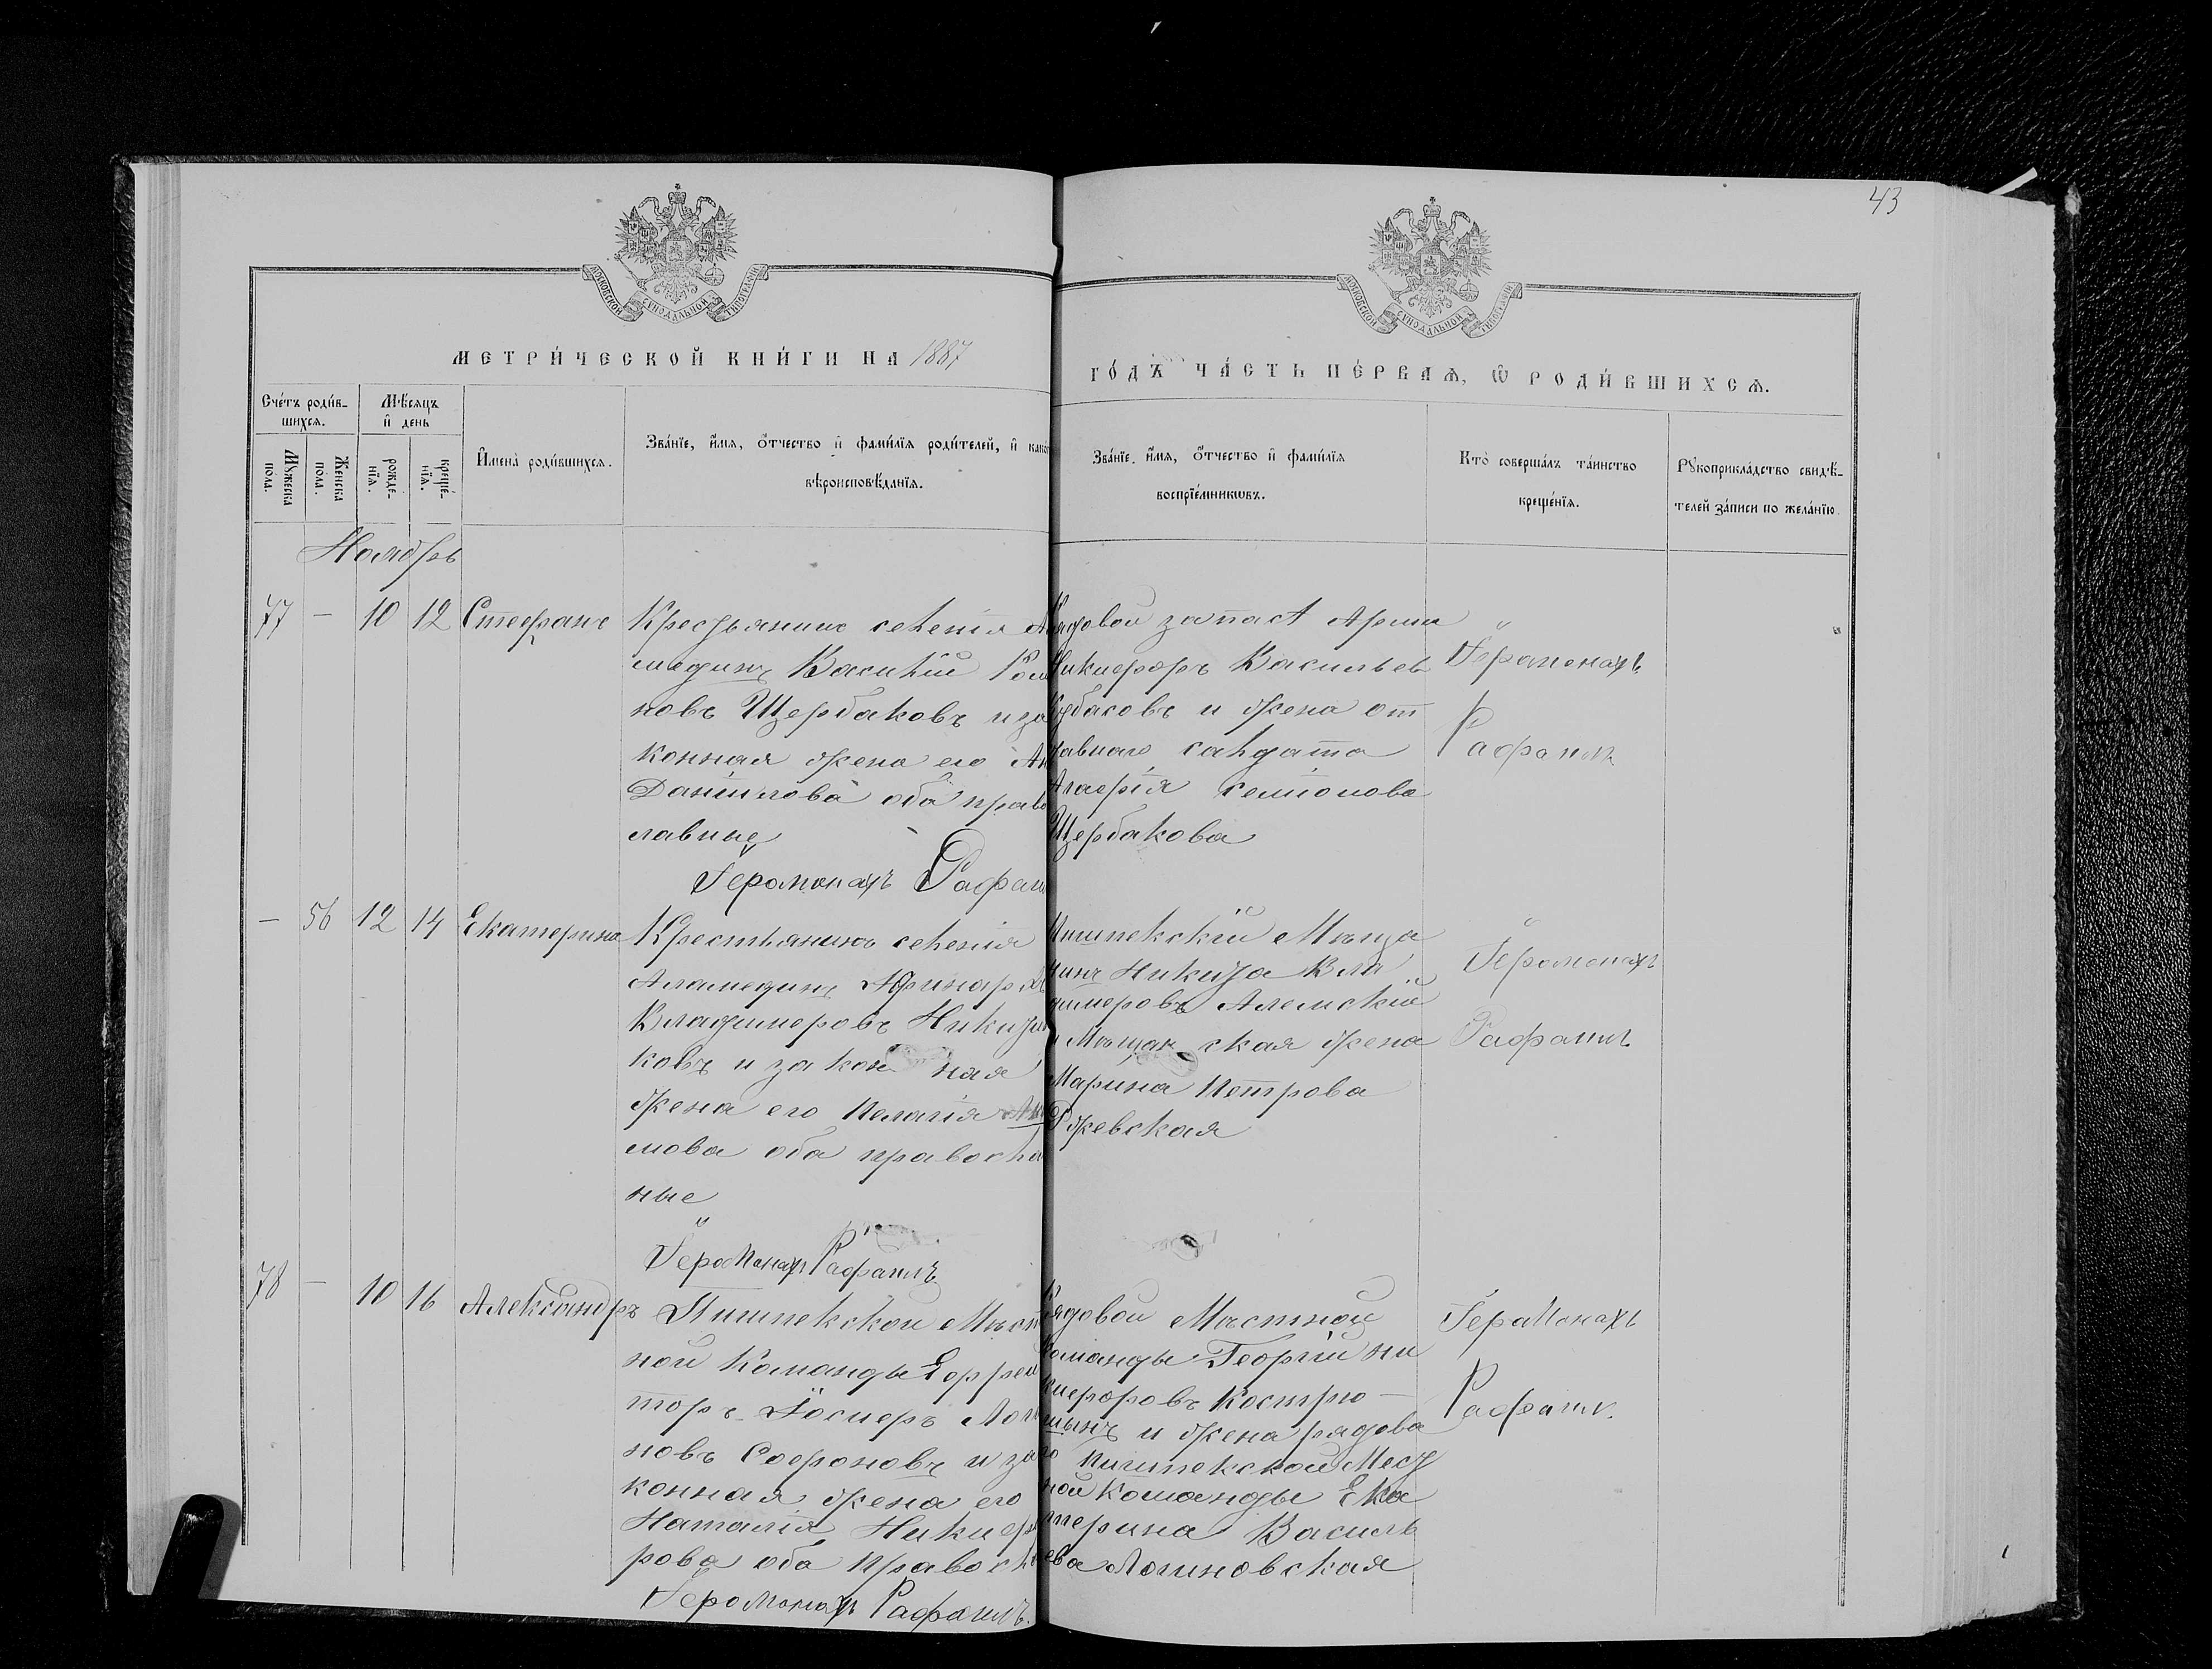 43
МОСКОВСКОЙ СѴНОДАЛЬНОЙ ТИПОГРАФІИ
МОСКОВСКОЙ СѴНОДАЛЬНОЙ ТИПОГРАФІИ
МЕТРИ́ЧЕСКОЙ КНИ́ГИ НА 1887
ГО́ДЪ ЧА́СТЬ ПЕ́РВАѦ, Ѡ҆ РОДИ́ВШИХСѦ.
Сче́тъ роди́в-
шихсѧ.
Мꙋ́жеска
по́ла.
Же́нска
по́ла.
Мѣ́сѧцъ
и҆ день
рожде́-
нїѧ.
креще́-
нїѧ.
И҆мена̀ роди́вшихсѧ.
Зва́нїе, и҆́мѧ, ѻ҆́тчество и҆ фами́лїѧ роди́телей, и҆ како́
вѣроисповѣ́данїѧ.
Зва́нїе, и҆́мѧ, ѻ҆́тчество и҆ фами́лїѧ
воспрїе́мникѡвъ.
Кто̀ соверша́лъ та́инство
креще́нїѧ.
Рꙋкоприкла́дство свидѣ́-
телей за́писи по жела́нїю.
Ноябрь
77 — 10 12 Стефанъ
Крестьянинъ селенія А
медина Василій Рома
новъ Щербаковъ и за
конная жена его Ан
Даниилова оба право
лавные
Іеромонахъ Рафаи
Рядовой запаса Арміи
Никифоръ Васильев
Кубасовъ и жена от
тавнаго солдата
Агафія Семіонова
Щербакова
Іеромонахъ
Рафаилъ
— 56 12 14 Екатерина
Крестьянинъ селенія
Аламедина
Владимеровъ Никити
ковъ и закон ная
жена его Пелагія
мова оба правосла
ные
Іеромонахъ Рафаилъ
Пишпекскій Мѣща
нинъ Никита Вла
димеровъ Алемскій
и Мѣщан ская жена
Марина Петрова
Ржевская
Іеромонахъ
Рафаилъ
78 — 10 16 Александръ
Пишпекской Мѣст
ной Команды Ефрей
торъ Іосифъ Логи
новъ Софроновъ и за
конная жена его
Наталія Никифо
рова оба правосл
Іеромонахъ Рафаилъ.
Рядовой Мѣстной
Команды Георгій Ни
кифоровъ Костри-
цынъ и жена рядово
го Пишпекской Мест
ной Команды Ека
терина Василь
ева Логиновская
Іеромонахъ
Рафаилъ.